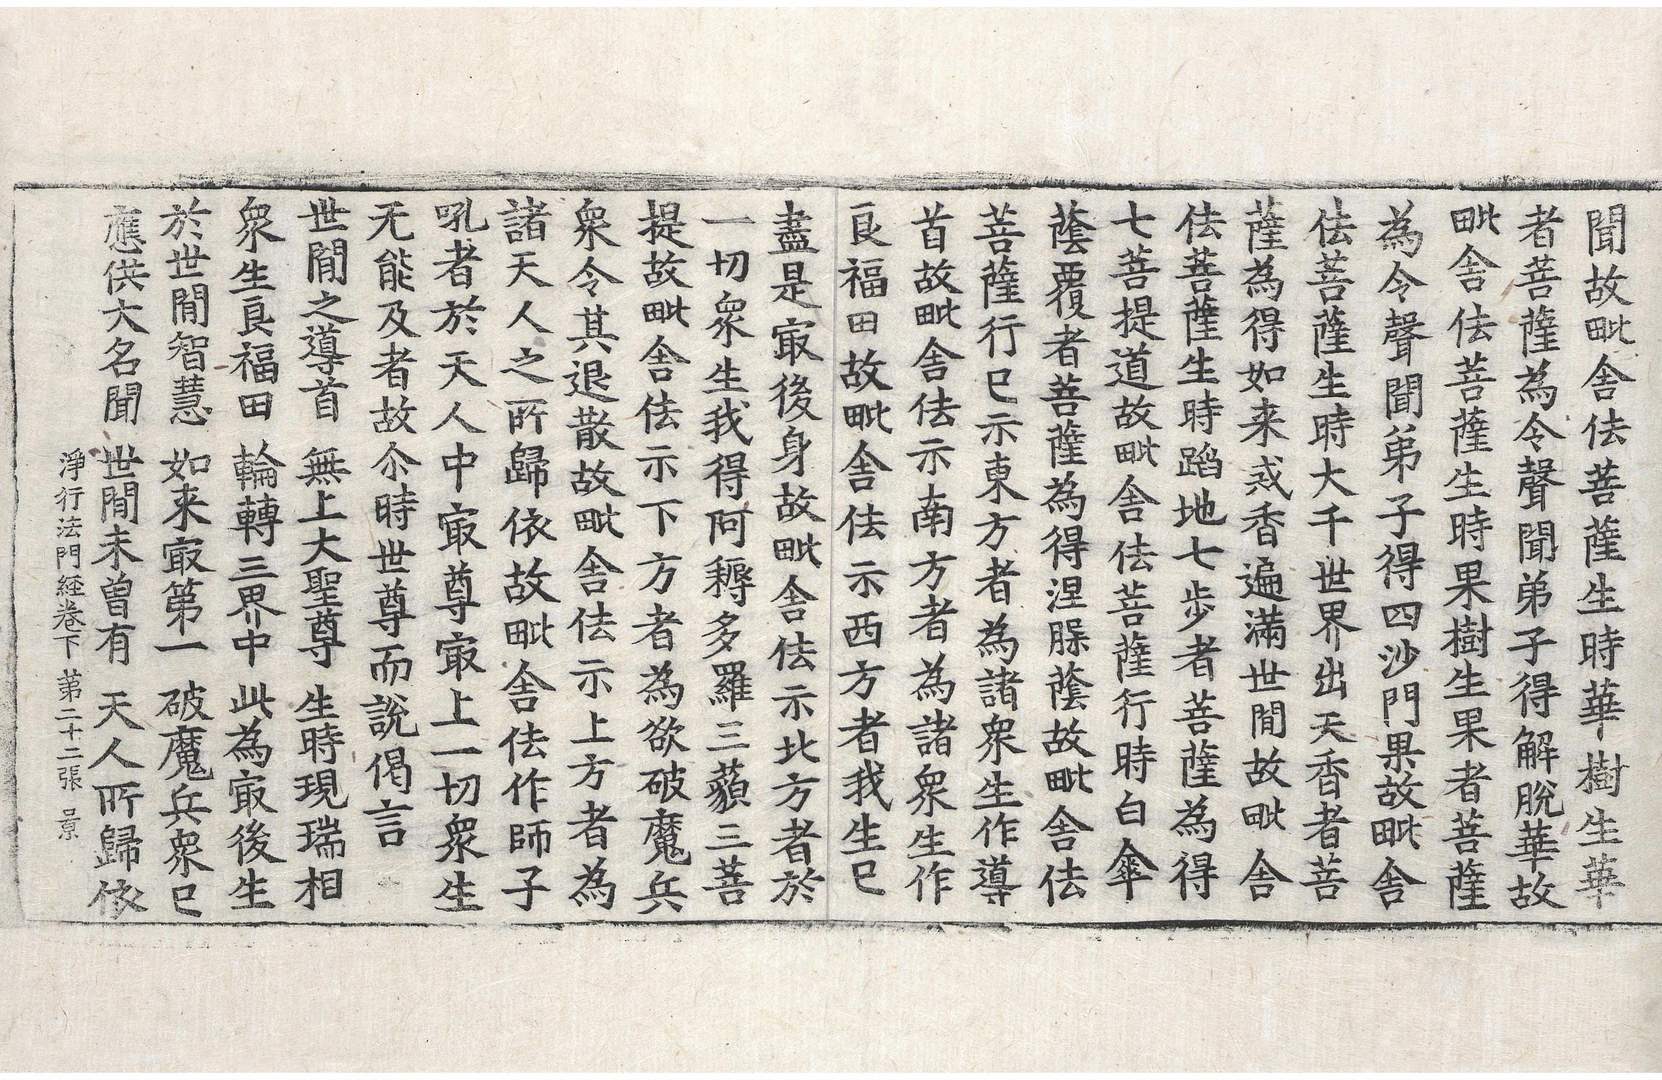 聞故毗舍佉菩薩生時華樹生華
者菩薩為令聲聞弟子得解脫華故
毗舍佉菩薩生時果樹生果者菩薩
為令聲聞弟子得四沙門果故毗舍
佉菩薩生時大千世界出天香者菩
薩為得如来戒香遍滿世閒故毗舍
佉菩薩生時蹈地七步者菩薩為得
七菩提道故毗舍佉菩薩行時白傘
蔭覆者菩薩為得涅槃蔭故毗舍佉
菩薩行已示東方者為諸衆生作導
首故毗舍佉示南方者為諸衆生作
良福田故毗舍佉示西方者我生已
盡是㝡後身故毗舍佉示北方者於
一切衆生我得阿耨多羅三藐三菩
提故毗舍佉示下方者為欲破魔兵
衆令其退散故毗舍佉示上方者為
諸天人之所歸依故毗舍佉作師子
吼者於天人中㝡尊㝡上一切衆生
无能及者故尒時世尊而說偈言
世閒之導首　無上大聖尊　生時現瑞相
衆生良福田　輪轉三界中　此為㝡後生
於世閒智慧　如来㝡第一　破魔兵衆已
應供大名聞　世閒未曾有　天人所歸依
淨行法門経卷下　第二十二張　景